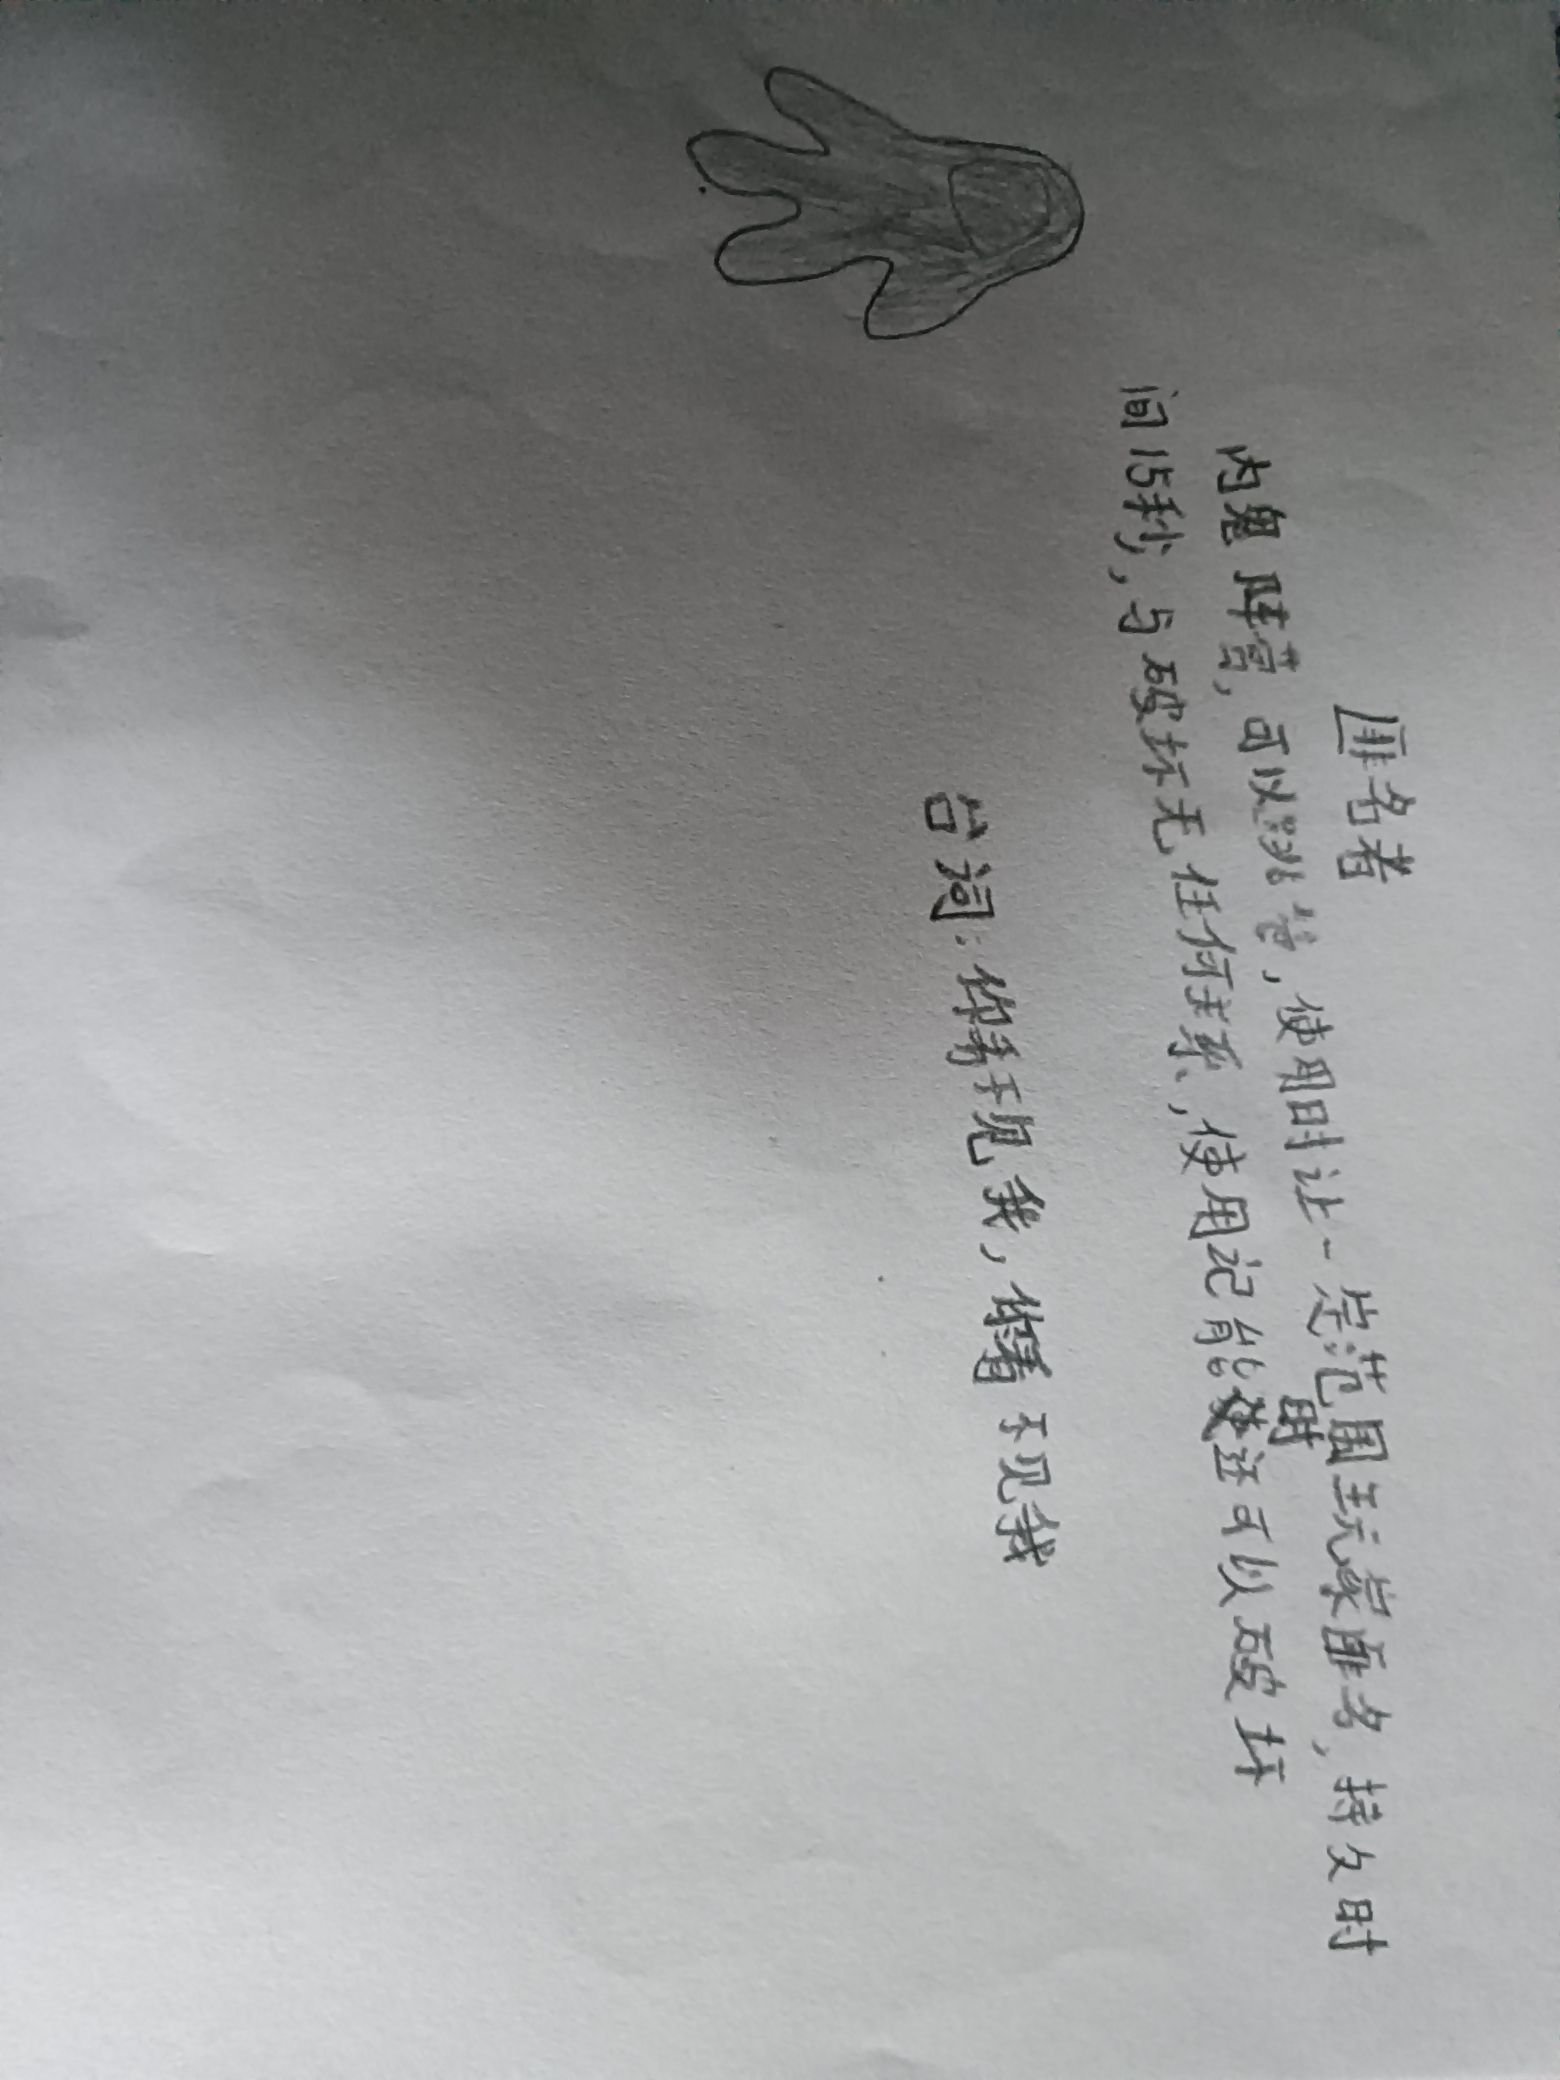 匿名者
内鬼阵营，可以跳管，使用时让一定范围玩家匿名，持久时
间15秒，与破坏无任何关系，使用记能时还可以破坏
台词：你看不见我，你看不见我